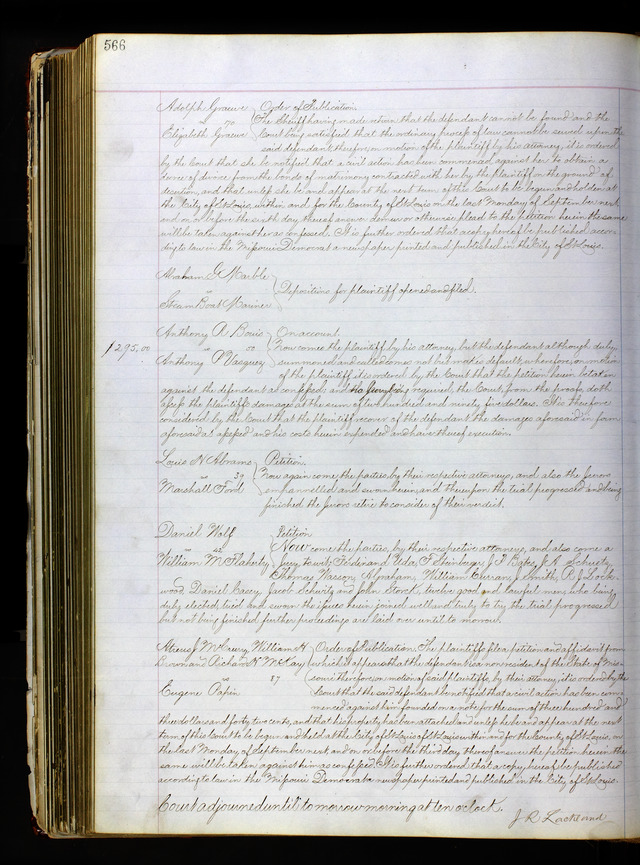 566
Adolph Graeve } Order of Publication
vs 70 } The Sheriff having made return that the defendant cannot be found and the
Elizabeth Graeve } Court being satisfied that the ordinary process of law cannot be served upon the
said defendant therefore on motion of the plaintiff by his attorney, it is ordered
by the Court that she be notified that a civil action has been commenced against her to obtain a
decree of divorce from the bonds of matrimony contracted with her by the plaintiff on the ground of
desertion, and that unless she be and appear at the next term of this Court to be begun and holden at
the City of St Louis within and for the County of St Louis on the last Monday of September next
and on or before the sixth day thereof answer demur or otherwise plead to the petition herein the same
will be taken against her as confessed. It is further ordered that a copy hereof be published accor
ding to law in the Missouri Democrat a newspaper printed and published in the City of St Louis.
Abraham G Marble
vs } Depositions for plaintiff opened and filed.
Steam Boat Mariner
Anthony A Bouis } On account
$295.00 vs 50 } Now comes the plaintiff by his attorney, but the defendant although duly
Anthony P Vasquez } summoned and called comes not but makes default, wherefore, on motion
of the plaintiff it is ordered by the Court that the petition herein be taken
against the defendant as confessed, and no Jury being required, the Court, from the proofs, doth
assess the plaintiffs damages at the sum of two hundred and ninety five dollars. It is therefore
considered by the Court that the plaintiff recover of the defendant the damages aforesaid in form
aforesaid as assessed and his costs herein expended and have thereof execution.
Louis N Abrams } Petition.
vs 39 } Now again come the parties by their respective attorneys, and also the Jurors
Marshall Ford } empannelled and sworn herein, and thereupon the trial progressed and being
finished the Jurors retire to consider of their verdict.
Daniel Wolf } Petition
vs 42 } Now come the parties, by their respective attorneys, and also come a
William McFlaherty } Jury, to wit, Ferdinand Uda, F Steinberger, J F Bates, J H Schuitz,
Thomas Wasson, Abraham, William Curran, Smith, R J Lock
wood, Daniel Casey, Jacob Schuitz and John Stork, twelve good and lawful men, who being
duly elected, tried and sworn the issues herein joined well and truly to try the trial progressed
but not being finished further proceedings are laid over until to morrow.
McCreery, William H } Order of Publication. The plaintiffs file a petition and affidavit from
Brown and Richard H McKay } which it appears that the defendant is a nonresident of the State of Mis
vs 87 } souri therefore, on motion of said plaintiffs, by their attorney, it is ordered by the
Eugene Papin } Court that the said defendant be notified that a civil action has been com
menced against him founded on a note for the sum of three hundred and
three dollars and forty two cents, and that his property has been attached, and unless he be and appear at the next
term of this Court to be begun and held at the City of St Louis within and for the County of St Louis, on
the last Monday of September next and on or before the third day thereof answer the petition herein the
same will be taken against him as confessed. It is further ordered that a copy hereof be published
according to law in the Missouri Democrat a newspaper printed and published in the City of St Louis.
Court adjourned until to morrow morning at ten o'clock.
J. R. Lackland